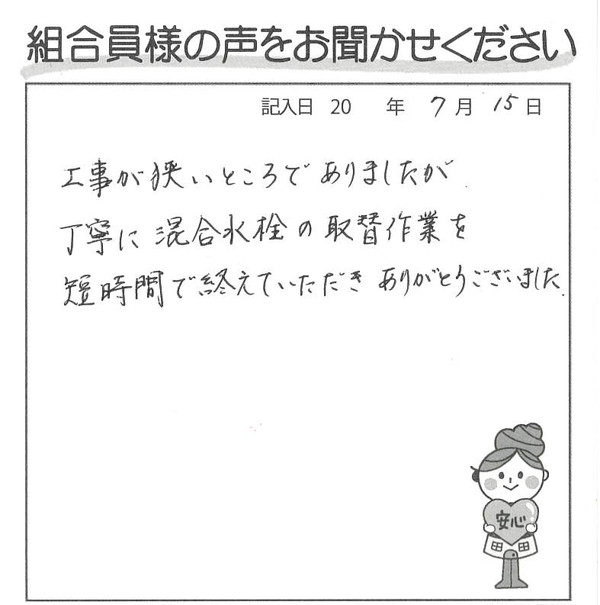 組合員様の声をお聞かせください
記入日 20 年 7月 15日
工事が狭いところでありましたが
丁寧に混合水栓の取替作業を
短時間で終えていただきありがとうございました.
安心